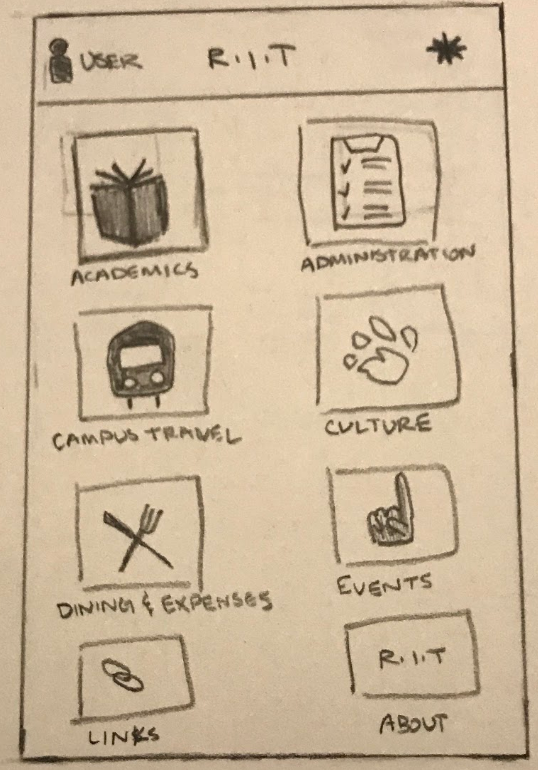 USER R.I.T
ACADEMICS ADMINISTRATION
CAMPUS TRAVEL CULTURE
DINING & EXPENSES EVENTS
R.I.T
LINKS ABOUT